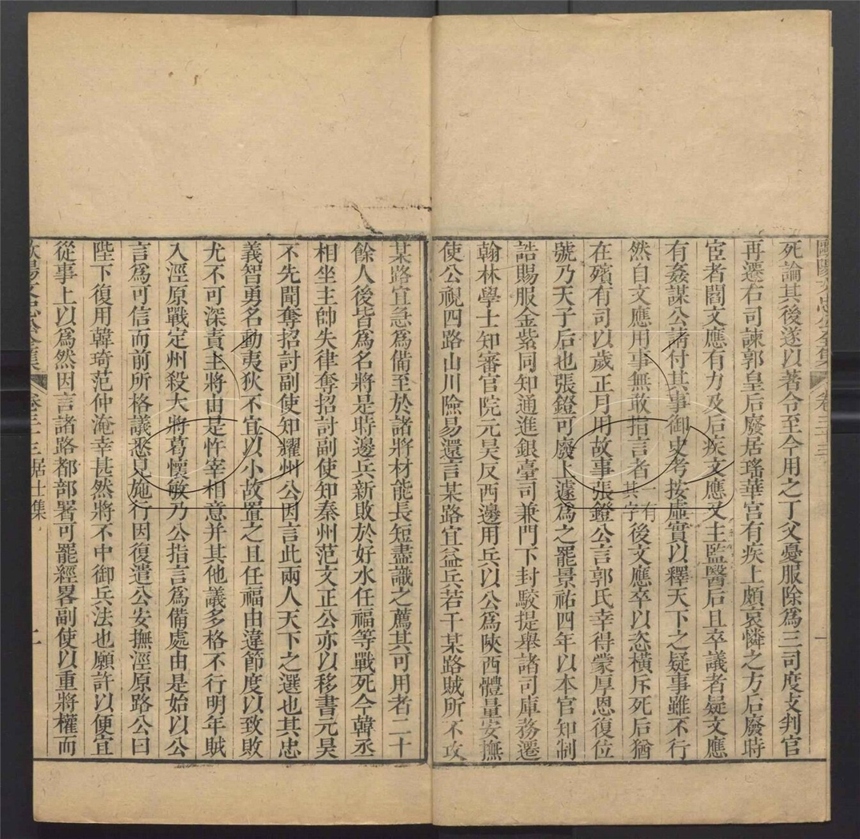 死論其後遂以著令至今用之丁父憂服除爲三司度支判官
再遷右司諫郭皇后廢居瑤華宮有疾上頗哀憐之方后廢時
宦者閻文應有力及后疾文應又主監醫后且卒議者疑文應
有姦謀公請付其事御史考按虛實以釋天下之疑事雖不行
然自文應用事無敢指言者其字有後文應卒以恣橫斥死后猶
在殯有司以歲正月用故事張鐙公言郭氏幸得蒙厚恩復位
號乃天子后也張鐙可廢上遽爲之罷景祐四年以本官知制
誥賜服金紫同知通進銀臺司兼門下封駮提舉諸司庫務遷
翰林學士知審官院元昊反西邊用兵以公爲陝西體量安撫
使公視四路山川險易還言某路宜益兵若干某路賊所不攻
某路宜急爲備至於諸將材能長短盡識之薦其可用者二十
餘人後皆爲名將是時邊兵新敗於好水任福等戰死今韓丞
相坐主帥失律奪招討副使知秦州范文正公亦以移書元昊
不先聞奪招討副使知耀州公因言此兩人天下之選也其忠
義智勇名動夷狄不宜以小故置之且任福由違節度以致敗
尤不可深責主將由是忤宰相意并其他議多格不行明年賊
入涇原戰定州殺大將葛懷敏乃公指言爲備處由是始以公
言爲可信而前所格議悉見施行因復遣公安撫涇原路公曰
陛下復用韓琦范仲淹幸甚然將不中御兵法也願許以便宜
從事上以爲然因言諸路都部署可罷經畧副使以重將權而
歐陽文忠公全集 卷三十三 居士集 二